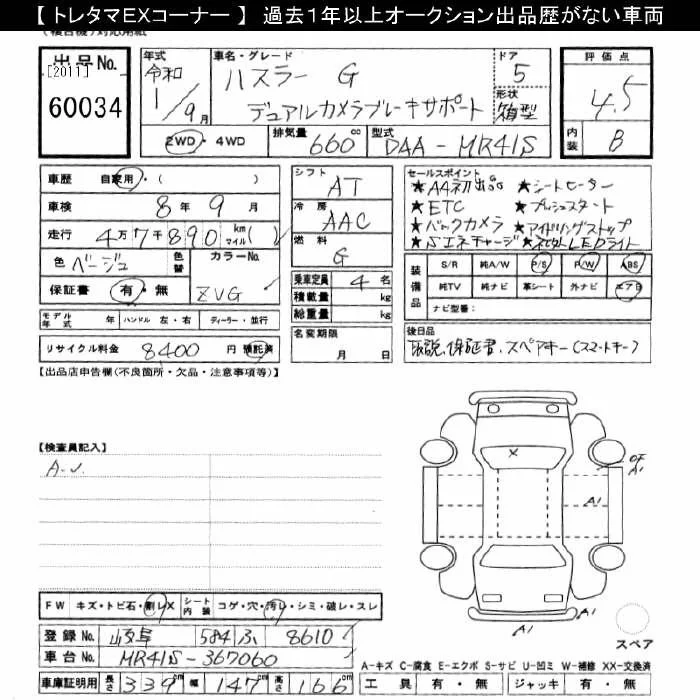 【 トレタマEXコーナー 】 過去１年以上オークション出品歴がない車両
(複合機)対応用紙
出品No.
[2011]
60034
年式
令和
1/9月
車名・グレード
ハスラー G
デュアルカメラブレーキサポート
ドア
5
形状
箱型
評価点
4.5
内装
B
2WD・4WD
排気量 660cc
型式 DAA-MR41S
車歴 自家用・( )
車検 8年9月
走行 4万7千890 km マイル( )
色 ベージュ
色替
カラーNo.
ZVG
保証書 有・無
シフト
AT
冷房
AAC
燃料
G
乗車定員 4名
積載量 kg
総重量 kg
セールスポイント
★AA初出品 ★シートヒーター
★ETC ★プッシュスタート
★バックカメラ ★アイドリングストップ
★Sエネチャージ
装備品
S/R 純A/W P/S P/W ABS
純TV 純ナビ 革シート 外ナビ エアB
ナビ型番：
モデル年式 年 ハンドル 左・右 ディーラー・並行
リサイクル料金 8400円 預託済
名変期限
月 日
後日品
取説、保証書、スペアキー(スマートキー)
【出品店申告欄(不良箇所・欠品・注意事項等)】
【検査員記入】
X
OF
A1
A1
A1
FW キズ・トビ石・割レX
シート内装 コゲ・穴・汚レ・シミ・破レ・スレ
登録No. 岐阜 584 ふ 8610
車台No. MR41S-367060
車庫証明用 長さ 339cm 幅 147cm 高さ 166cm
スペア
A-キズ C-腐食 E-エクボ S-サビ U-凹ミ W-補修 XX-交換済
工具 有・無 ジャッキ 有・無